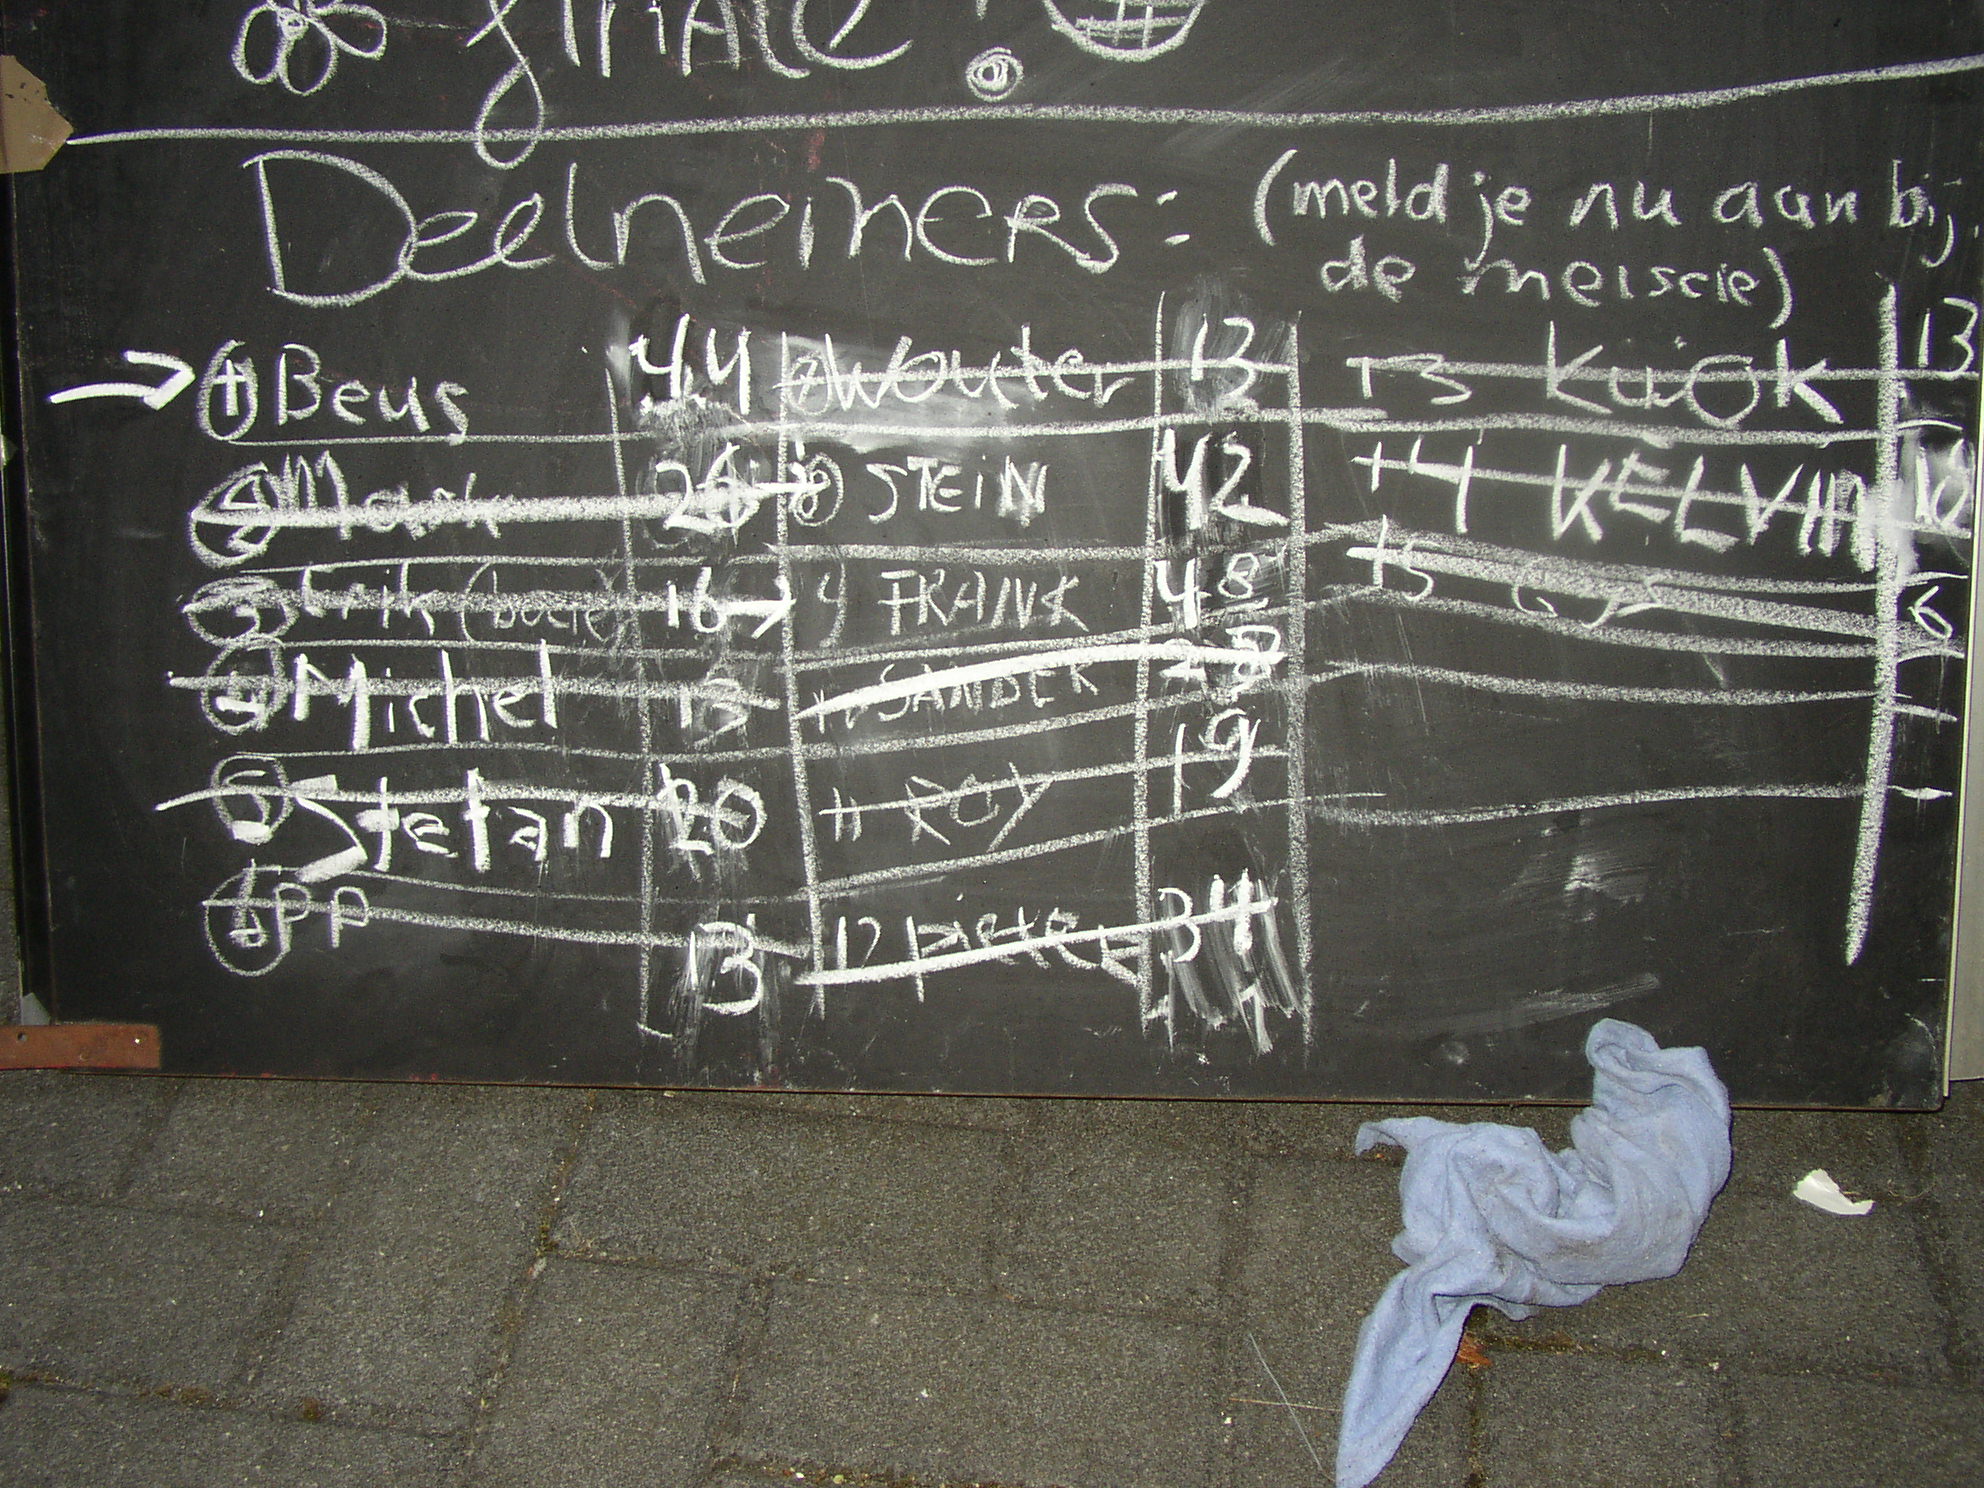 finale!
Deelnemers: (meld je nu aan bij
de meiscie)
1 Beus 44 7 Wouter 13 13 Kuiok 13
2 Mark 26 8 STEIN 42 14 KELVIN 18
3 Erik 16 9 FRANK 48 15 Gijs 6
4 Michel 13 SANDER
5 Stefan 20 11 ROY 19
6 PP 13 12 Pieter 34